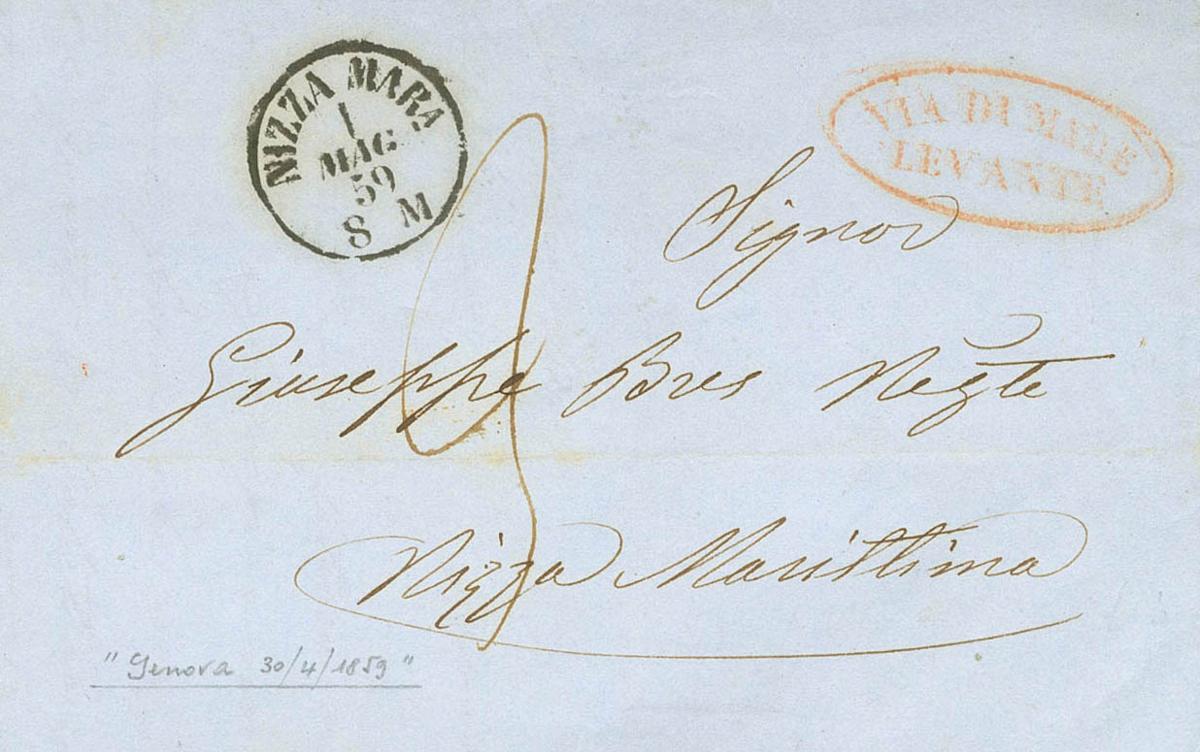 NIZZA MARA
1
MAG
59
8 M
VIA DI MARE
LEVANTE
Signor
Giuseppe Bres Negte
Nizza Marittima
"Genova 30/4/1859"